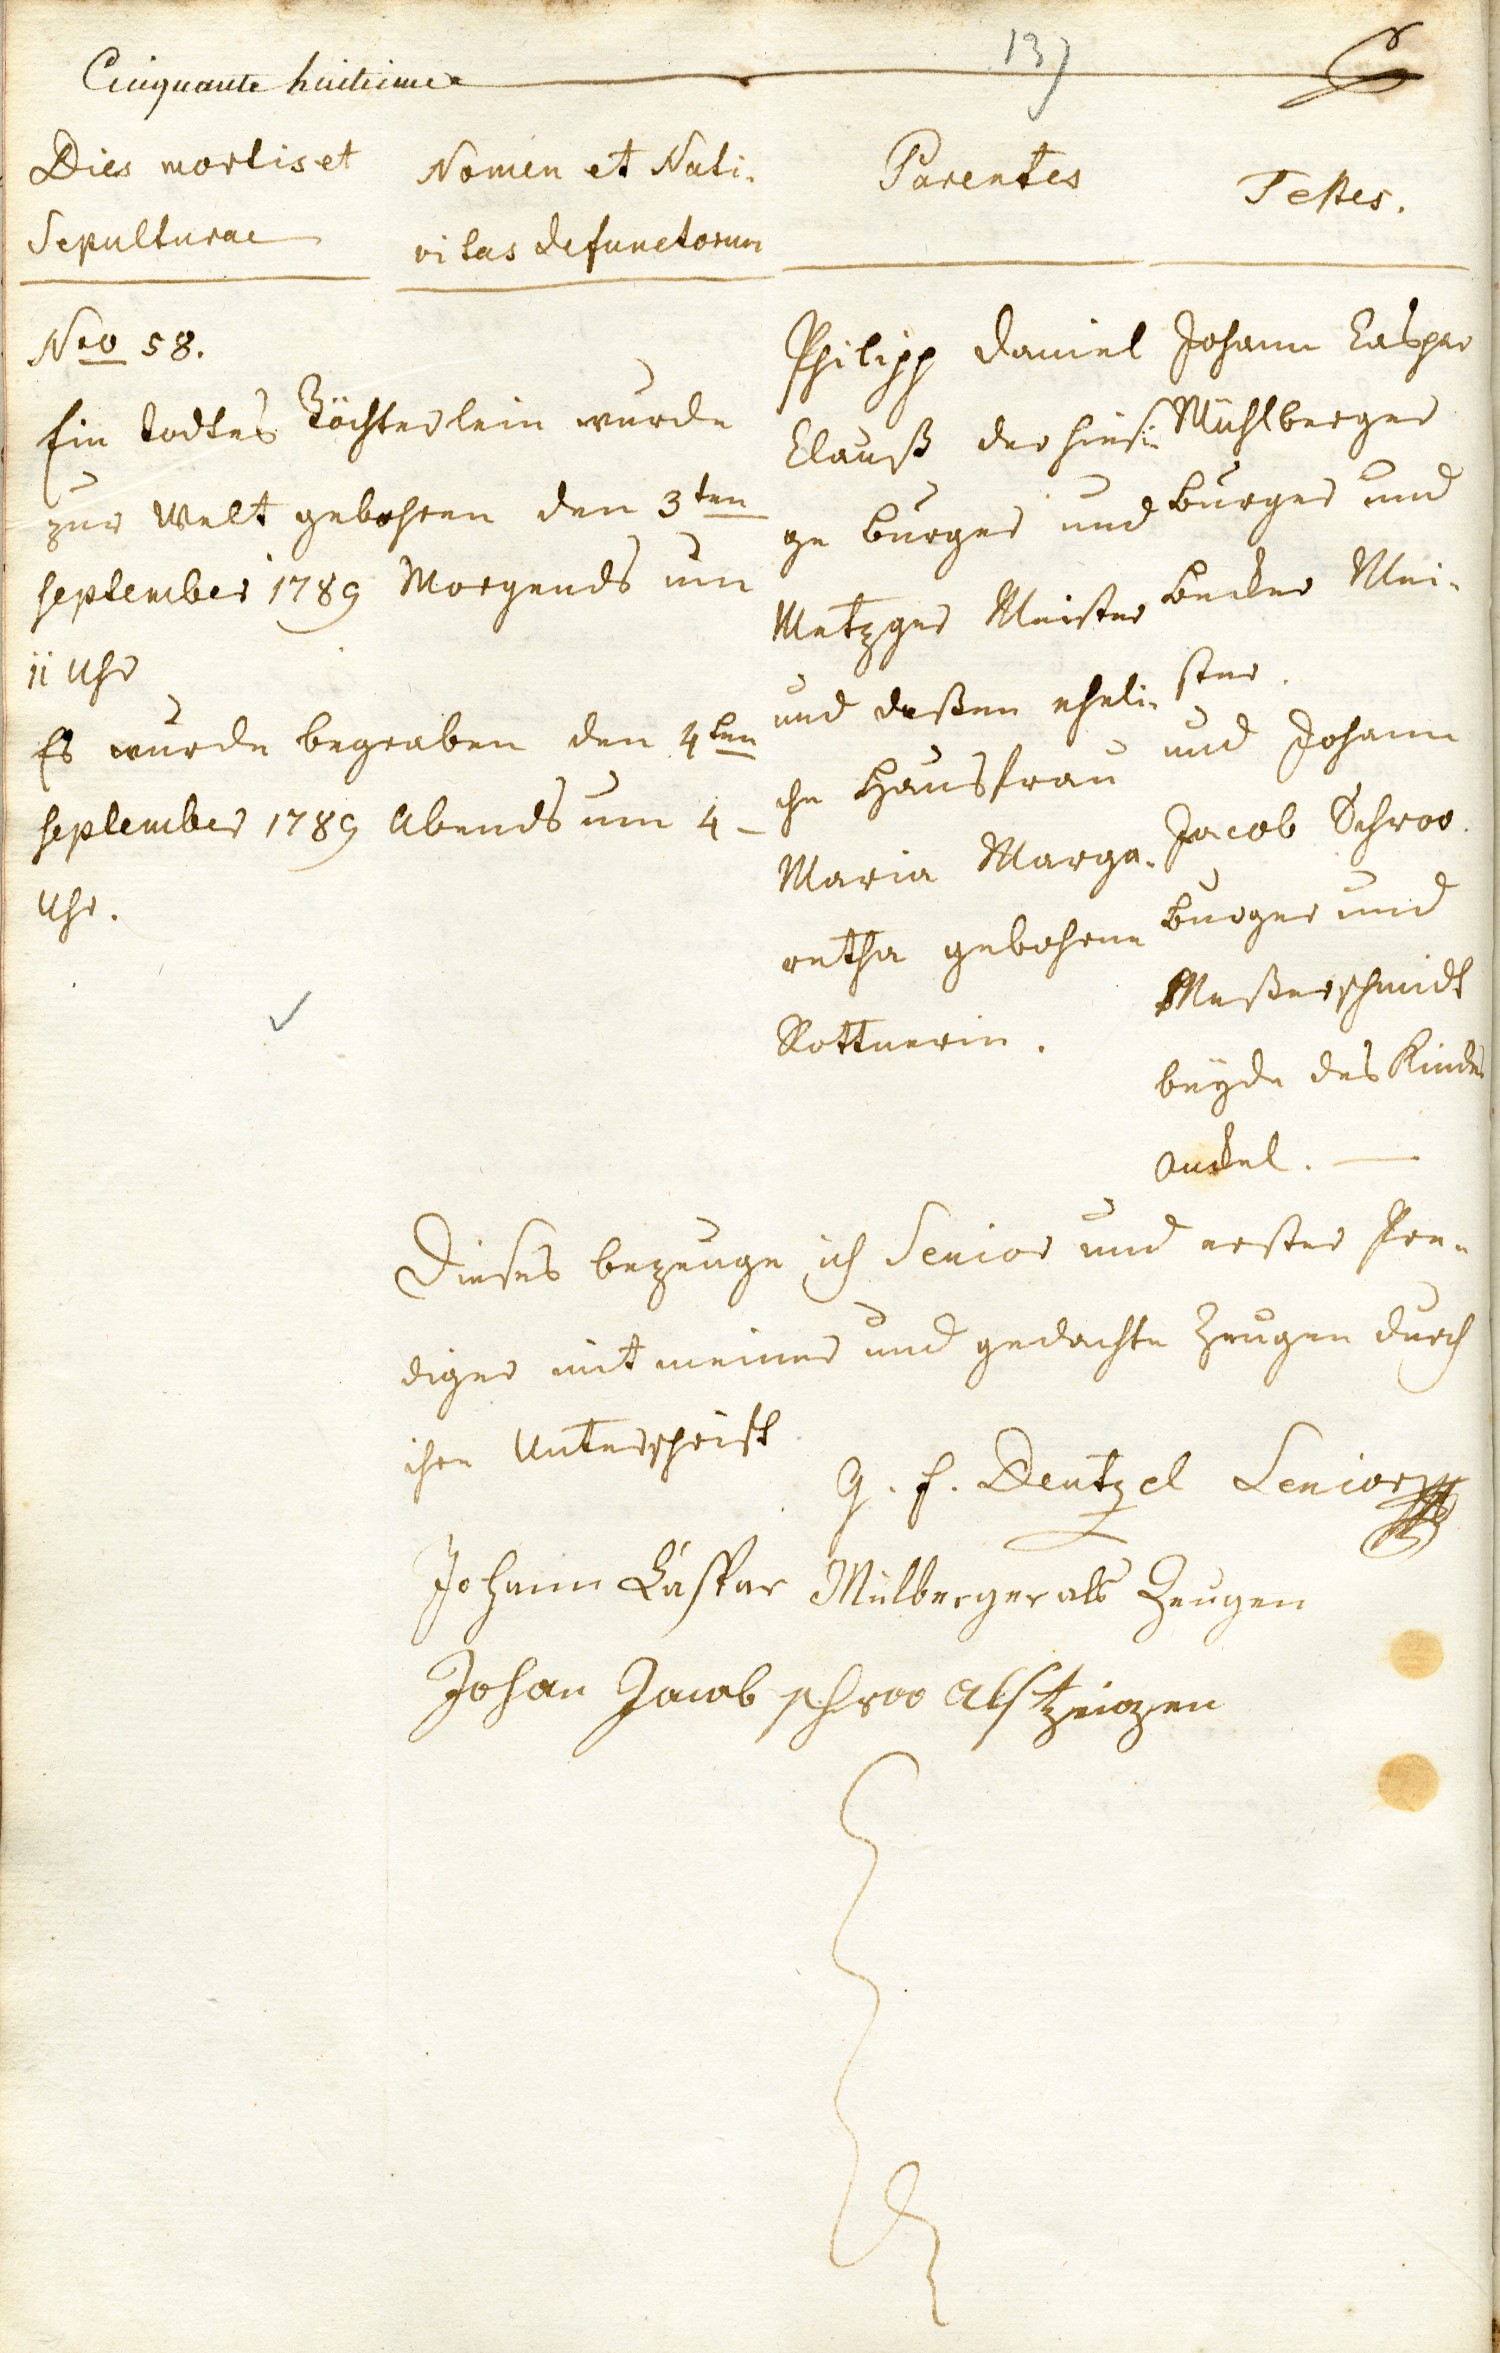 Cinquante huitieme
137
Dies mortis et
Sepulturae
Nomen et Nati-
vitas defunctorum
Parentes
Testes.
Nro 58.
Ein todtes Töchterlein wurde
zur Welt gebohren den 3ten
September 1789 Morgends um
11 Uhr
Es wurde begraben den 4ten
September 1789 Abends um 4 –
Uhr.
Philipp Daniel
Clauß der hiesi-
ge Burger und
Metzger Meister
und deßen eheli-
che Hausfrau
Maria Marga-
retha gebohrne
Rottnerin.
Johann Casper
Mühlberger
Burger und
Becker Mei-
ster.
und Johann
Jacob Schroo.
Burger und
Meßerschmidt
beyde des Kindes
Onckel. —
Dieses bezeuge ich Senior und erster Pre-
diger mit meiner und gedachte Zeugen durch
ihre Unterschrift
G. F. Dentzel Senior
Johann Caspar Mülberger als Zeugen
Johan Jacob schroo als tzeigen